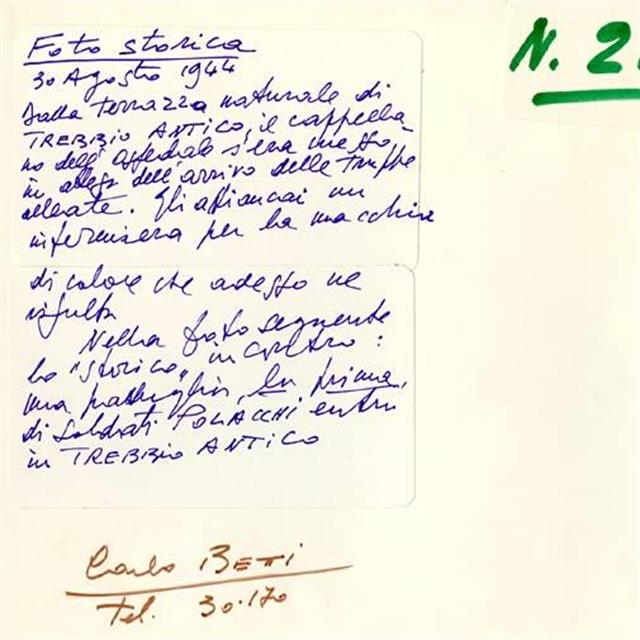 Foto storica
N. 2
30 Agosto 1944
Dalla terrazza naturale di
TREBBIO ANTICO, il cappella-
no dell'ospedale s'era messo
in attesa dell'arrivo delle truppe
alleate. Gli affiancai un
infermiera per la macchia
di colore che adesso ne
risulta
Nella foto seguente
lo "storico" incontro:
una pattuglia, la prima,
di soldati POLACCHI entra
in TREBBIO ANTICO
Carlo BETTI
Tel. 30.170